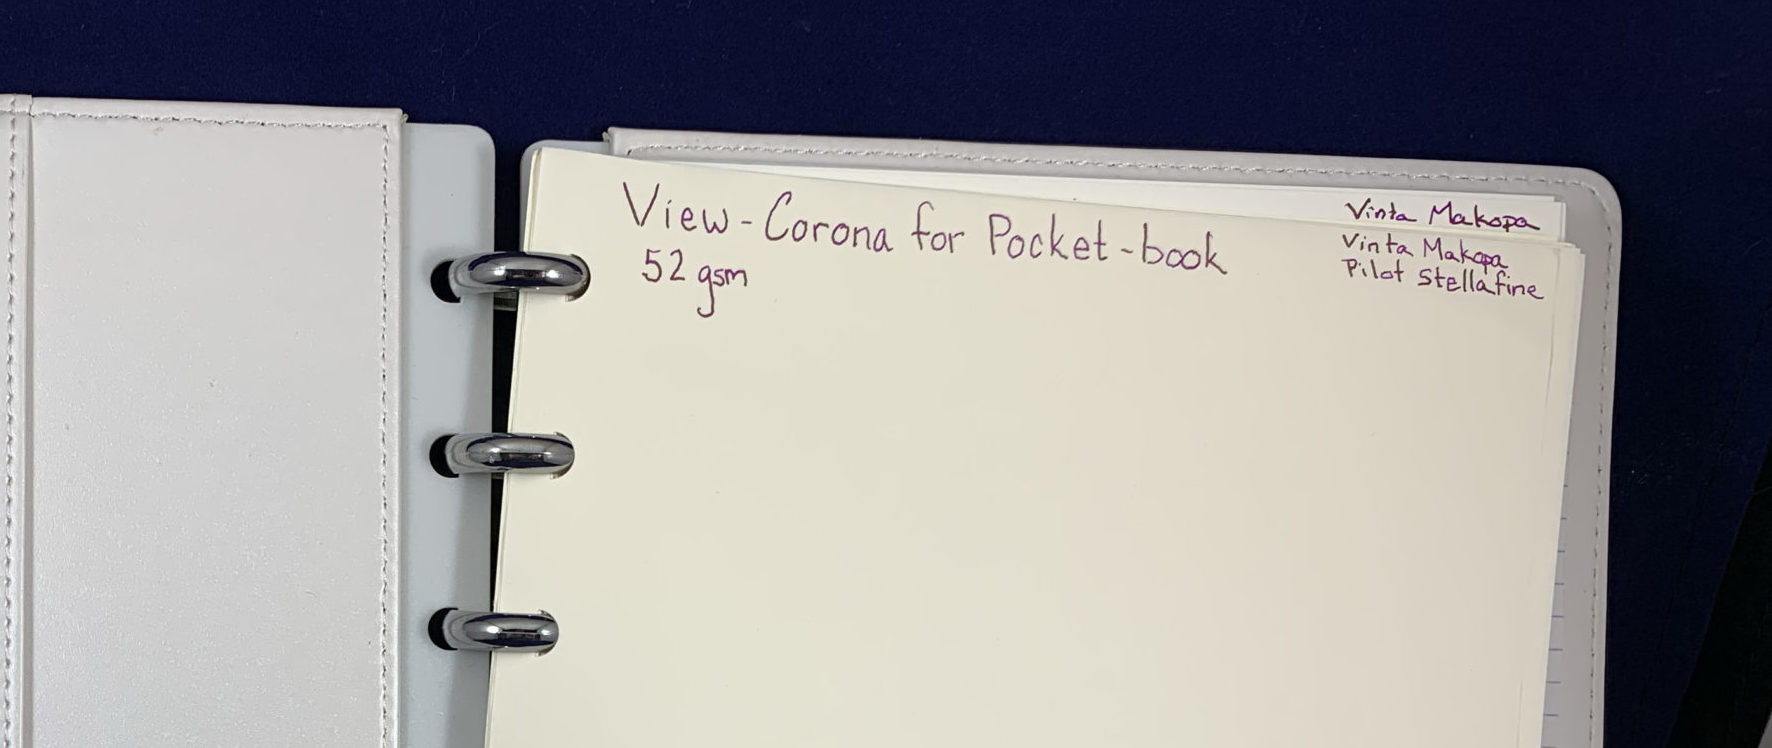 View-Corona for Pocket-book
52 gsm
Vinta Makopa
Vinta Makopa
Pilot Stella fine